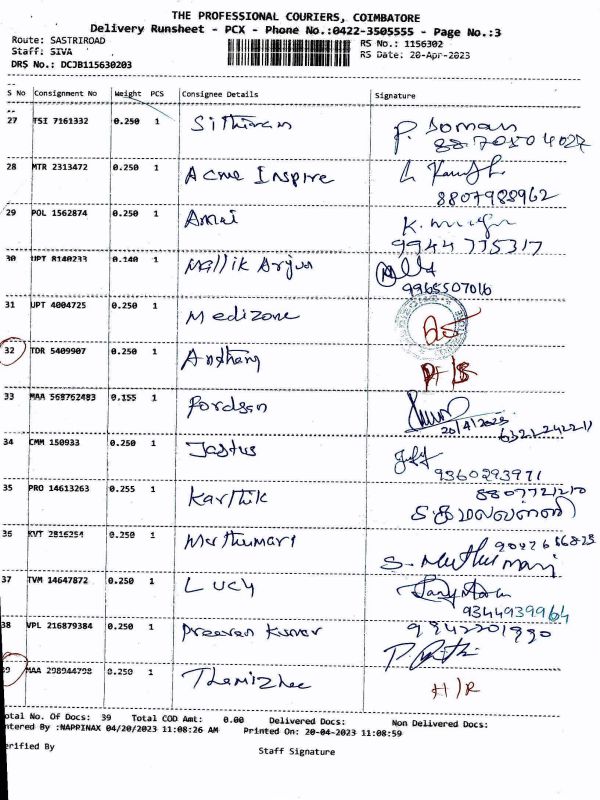 THE PROFESSIONAL COURIERS, COIMBATORE
Delivery Runsheet - PCX - Phone No.:0422-3505555 - Page No.:3
Route: SASTRIROAD
RS No.: 1156302
Staff: SIVA
RS Date: 20-Apr-2023
DRS No.: DCJB115630203
S No Consignment No Weight PCS Consignee Details Signature
27 TSI 7161332 0.250 1
P. Soman
28 MTR 2313472 0.250 1 Acme Inspire
8807988962
29 POL 1562874 0.250 1
9944775317
30 UPT 8140233 0.140 1 Mallik Arjun
9965507016
31 UPT 4004725 0.250 1 Medizone
32 TDR 5409907 0.250 1 Anthany
33 MAA 568762483 0.155 1 Fordson
20/4/2023
34 CMM 150933 0.250 1 Jastus
9360293971
35 PRO 14613263 0.255 1 Karthik
8807721210
36 KVT 2816254 0.250 1 Muthumari
S. Muthumari
37 TVM 14647872 0.250 1 Lucy
9344939964
38 VPL 216879384 0.250 1 Praeevan Kumar
9842201990
39 MAA 298944798 0.250 1 Thamizhee
H/R
otal No. Of Docs: 39 Total COD Amt: 0.00 Delivered Docs: Non Delivered Docs:
ntered By :NAPRINAX 04/20/2023 11:08:26 AM Printed On: 20-04-2023 11:08:59
erified By Staff Signature